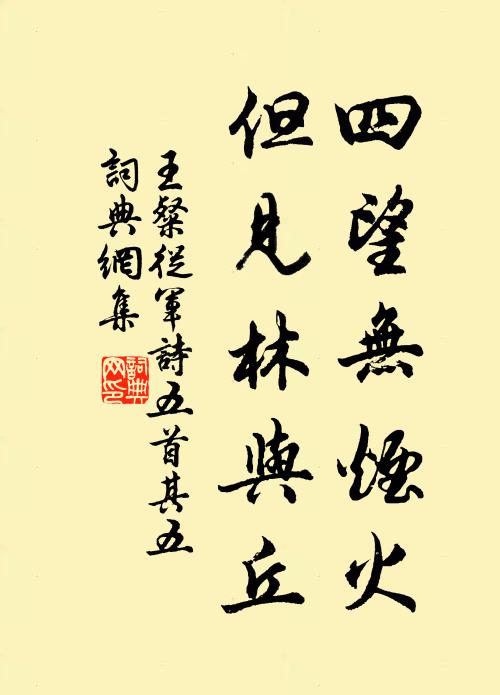 四望無煙火
但見林與丘
王粲從軍詩五首其五
詞典網集
詞典網印